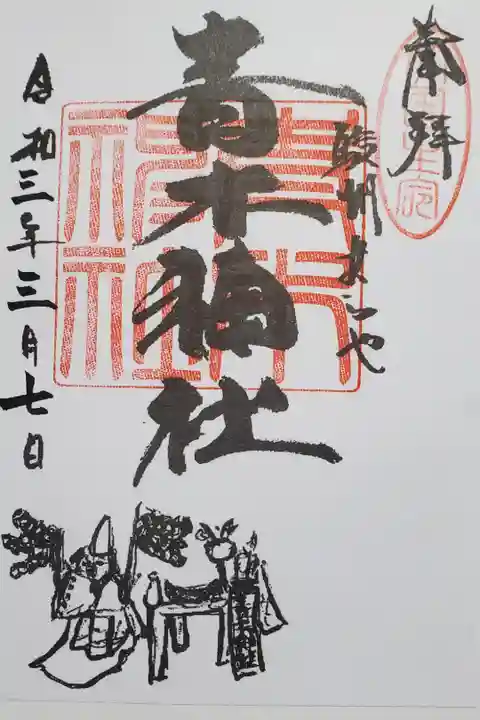 奉拝
駿州
青木神社
令和三年三月七日